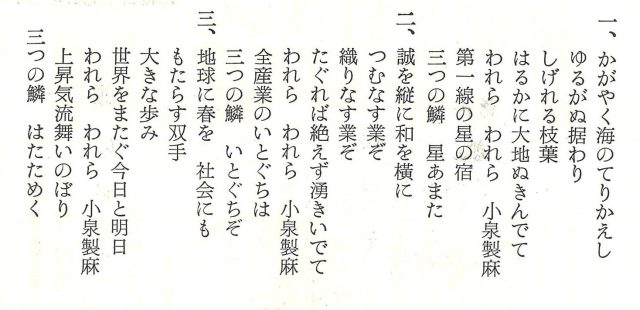 一、かがやく海のてりかえし
ゆるがぬ据わり
しげれる枝葉
はるかに大地ぬきんでて
われら　われら　小泉製麻
第一線の星の宿
三つの鱗　星あまた
二、誠を縦に和を横に
つむなす業ぞ
織りなす業ぞ
たぐれば絶えず湧きいでて
われら　われら　小泉製麻
全産業のいとぐちは
三つの鱗　いとぐちぞ
三、地球に春を　社会にも
もたらす双手
大きな歩み
世界をまたぐ今日と明日
われら　われら　小泉製麻
上昇気流舞いのぼり
三つの鱗　はたためく